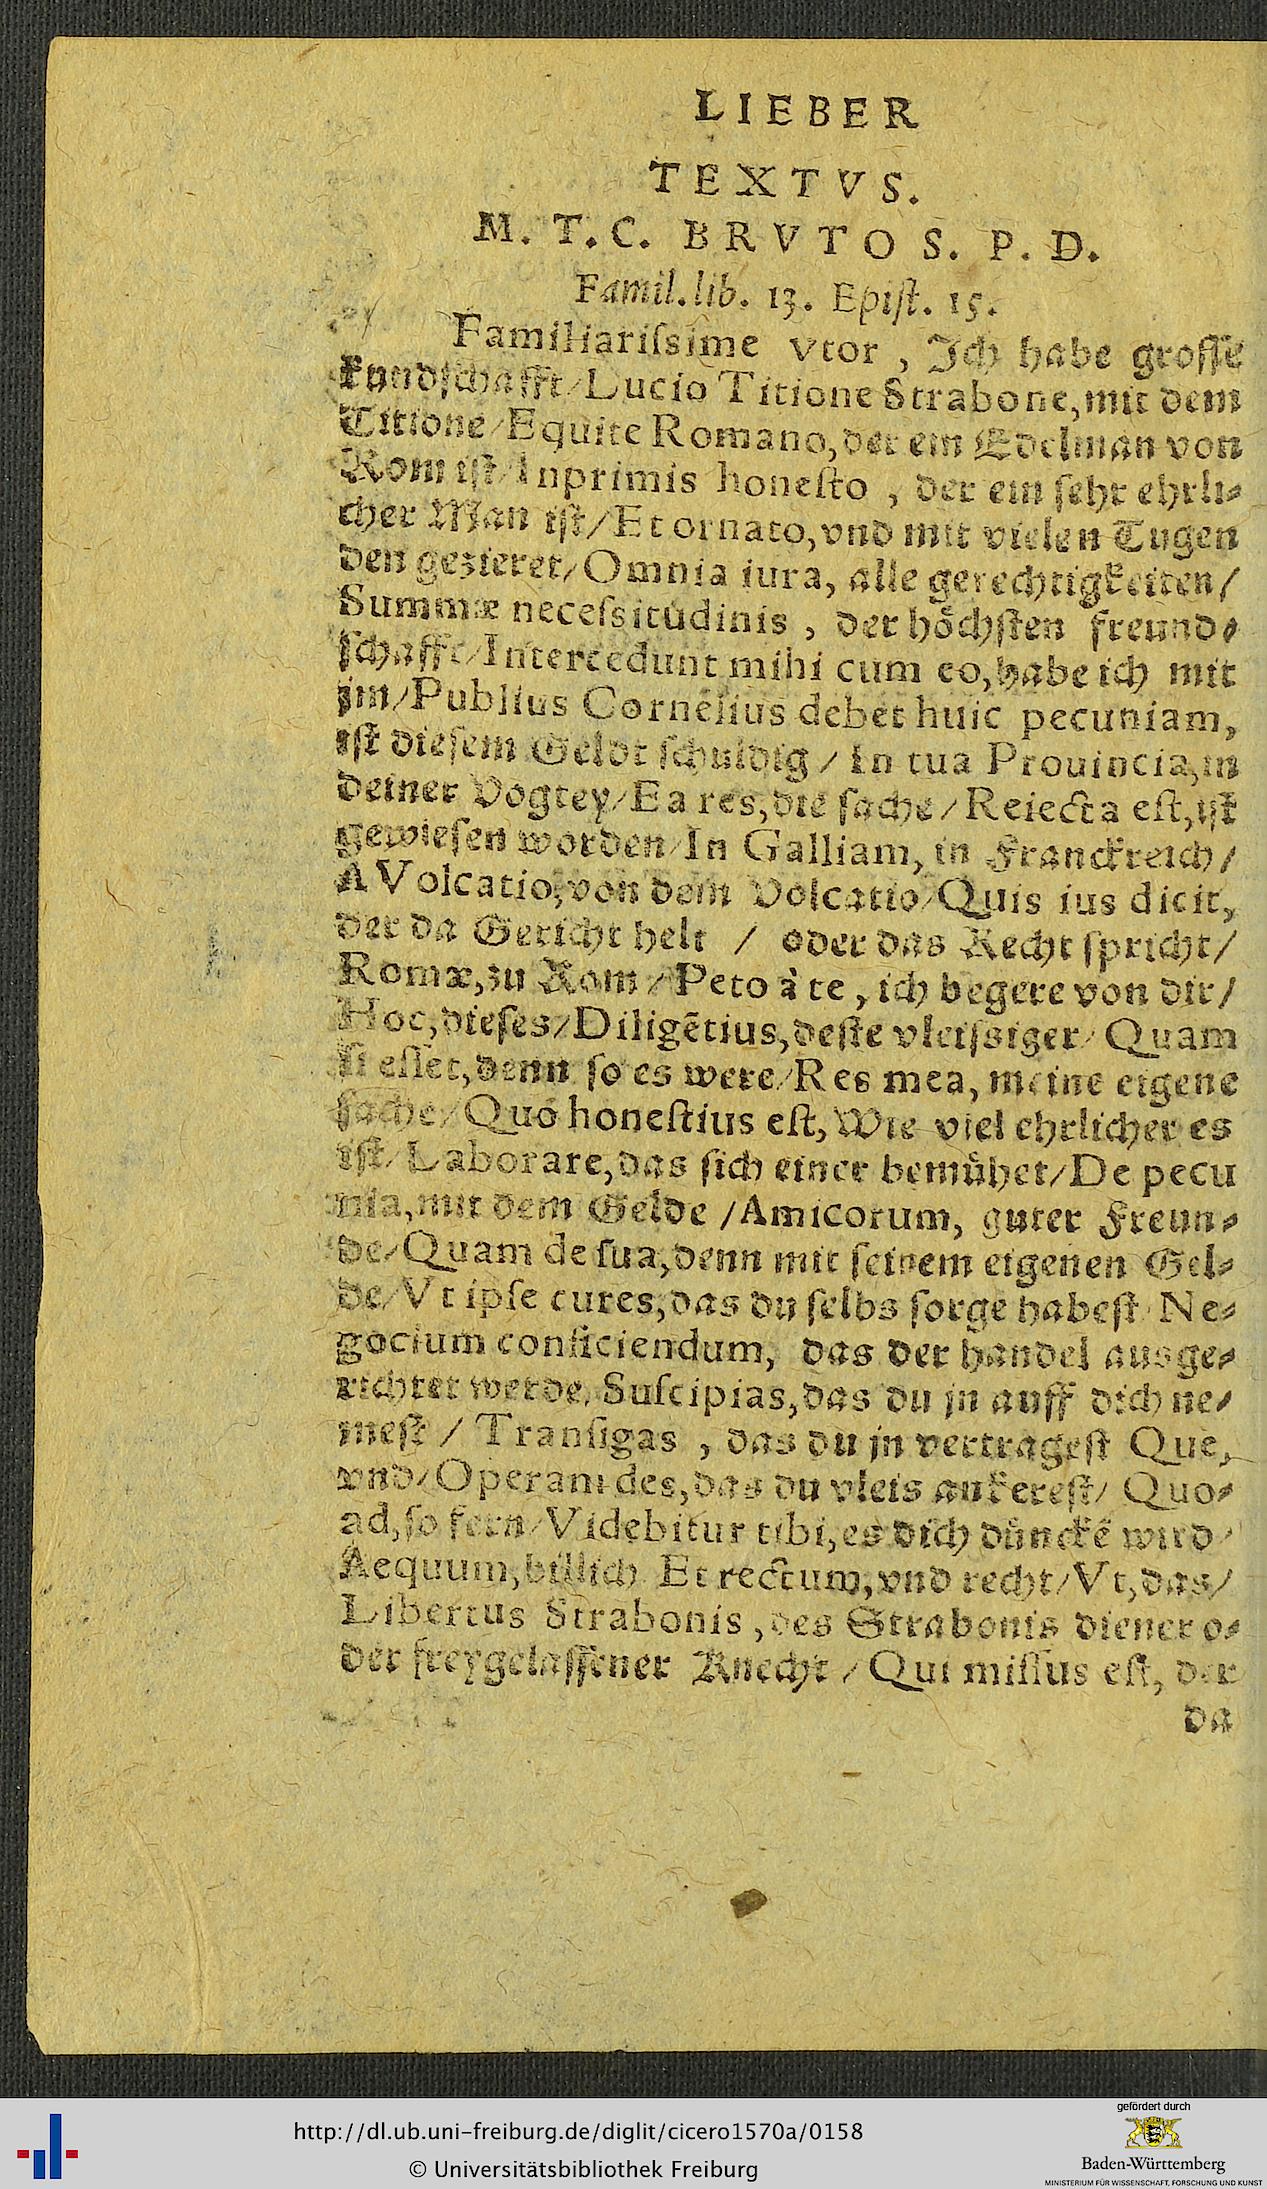 LIEBER
TEXTVS.
M. T. C. BRVTO S. P. D.
Famil. lib. 13. Epist. 15.
Familiariſsime vtor , Jch habe groſſe
kundſchafft/Lucio Titione Strabone,mit dem
Titione/Equite Romano,der ein Edelman von
Rom iſt/Inprimis honeſto , der ein ſehr ehrli⸗
cher Man iſt/Et ornato,vnd mit vielen Tugen
den gezieret/Omnia iura, alle gerechtigkeiten/
Summæ neceſsitudinis , der hoͤchſten freund⸗
ſchafft/Intercedunt mihi cum eo,habe ich mit
jm/Publius Cornelius debet huic pecuniam,
iſt dieſem Geldt ſchuldig / In tua Prouincia,in
deiner Vogtey/Ea res,die ſache/Reiecta eſt,iſt
gewieſen worden/In Galliam, in Franckreich/
A Volcatio,von dem Volcatio/Quis ius dicit,
der da Gericht helt / oder das Recht ſpricht/
Romæ,zu Rom/Peto à te , ich begere von dir/
Hoc,dieſes/Diligẽtius,deſte vleiſsiger/Quam
ſi eſſet,denn ſo es were/Res mea, meine eigene
ſache/Quo honeſtius eſt,Wie viel ehrlicher es
iſt/Laborare,das ſich einer bemuͤhet/De pecu
nia,mit dem Gelde /Amicorum, guter Freun⸗
de/Quam de ſua,denn mit ſeinem eigenen Gel⸗
de/Vt ipſe cures,das du ſelbs ſorge habeſt/Ne⸗
gocium conficiendum, das der handel ausge⸗
richtet werde, Suſcipias,das du jn auff dich ne⸗
meſt / Tranſigas , das du jn vertrageſt Que,
vnd/Operam des,das du vleis ankereſt/ Quo⸗
ad,ſo fern/Videbitur tibi,es dich duͤnckẽ wird/
Aequum,billich Et rectum,vnd recht/Vt,das/
Libertus Strabonis ,des Strabonis diener o⸗
der freygelaſſener Knecht /Qui miſſus eſt, der
da
http://dl.ub.uni-freiburg.de/diglit/cicero1570a/0158
© Universitätsbibliothek Freiburg
gefördert durch
Baden-Württemberg
MINISTERIUM FÜR WISSENSCHAFT, FORSCHUNG UND KUNST